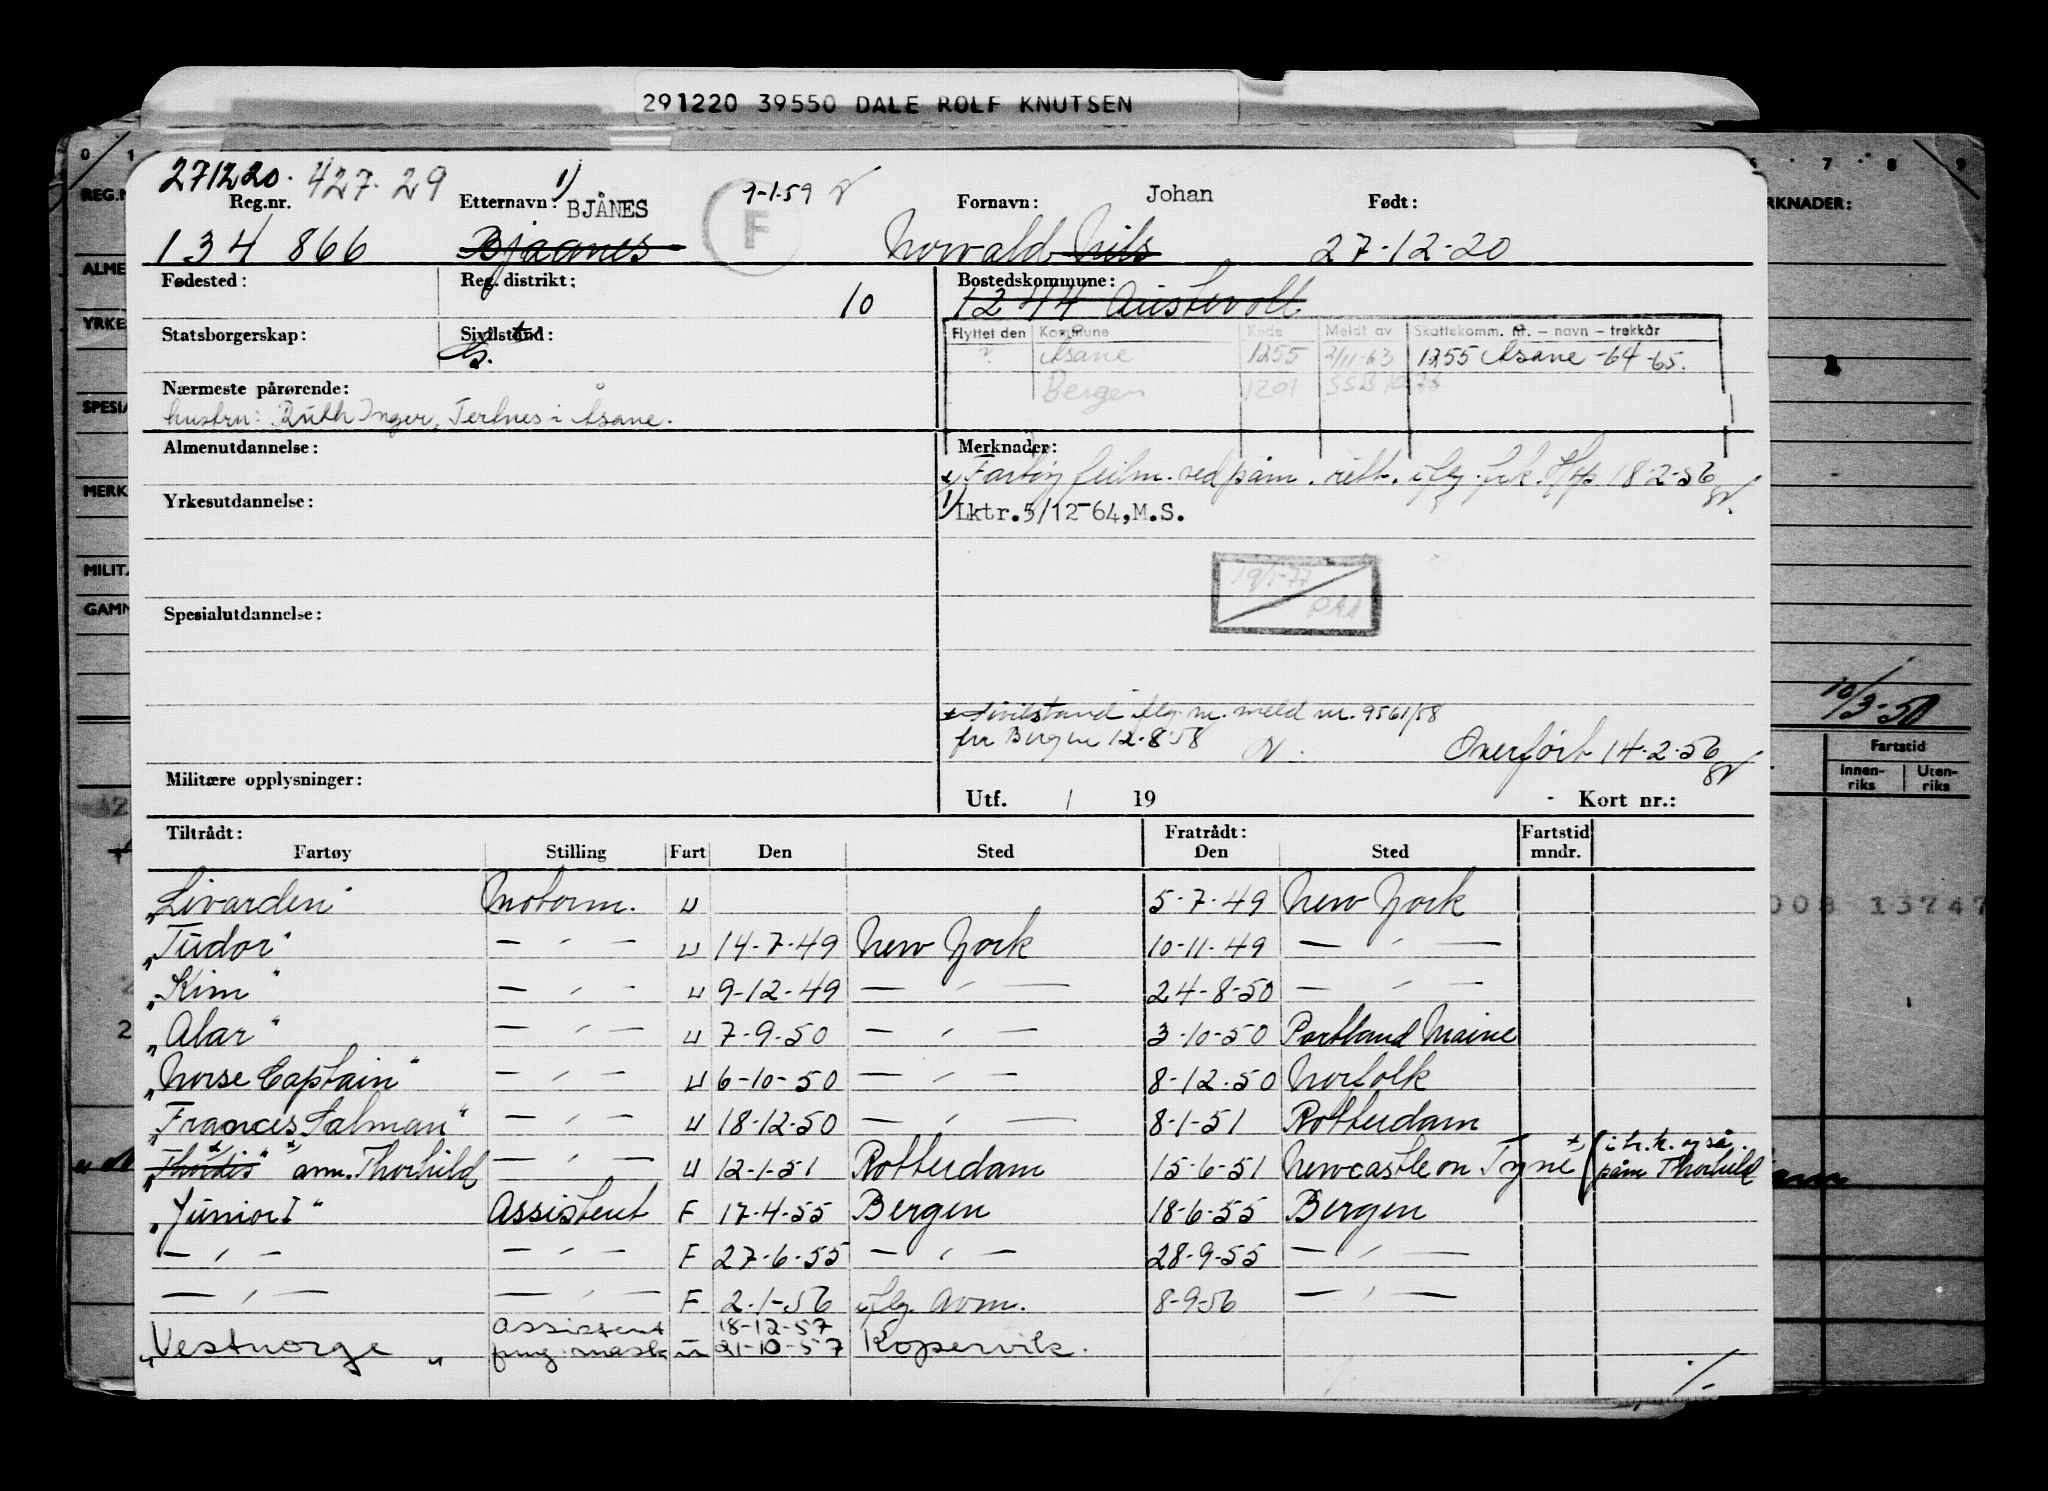 291220 39550 DALE ROLF KNUTSEN
271220. 427.29
Reg.nr.
134 866
Etternavn: 1) BJÅNES
Bjaanes
F
9-1-59
Fornavn: Johan
Norvald Nils
Født:
27-12-20
Fødested:
Reg. distrikt:
10
Bostedskommune:
1244 Austevoll
Statsborgerskap:
Sivilstand:
G.
Flyttet den Kommune Kode Meldt av Skattekomm. nr. – navn – trekkår
? Åsane 1255 2/11-63 1255 Åsane -64 -65.
Bergen 1201 SSB 10 76
Nærmeste pårørende:
hustru: Ruth Inger, Tertnes i Åsane.
Almenutdannelse:
Merknader:
x) Fartøy feilm. ved påm. rett. iflg. frk. 18-2-56
Yrkesutdannelse:
1) Lktr.5/12-64,M.S.
19/1-77
Spesialutdannelse:
Sivilstand iflg. m. meld nr. 9561/58
fra Bergen 12-8-58
Overført 14-2-56
Militære opplysninger:
Utf. / 19
Kort nr.:
Tiltrådt:
Fratrådt:
Fartøy Stilling Fart Den Sted Den Sted Fartstid mndr.
"Livarden" Motorm. U 5-7-49 New York
"Tudor" — " — U 14-7-49 New York 10-11-49 — " —
"Kim" — " — U 9-12-49 — " — 24-8-50 — " —
"Alar" — " — U 7-9-50 — " — 3-10-50 Portland Maine
"Norse Captain" — " — U 6-10-50 — " — 8-12-50 Norfolk
"Frances Salman" — " — U 18-12-50 — " — 8-1-51 Rotterdam
"Thordis" x anm. Thorhild — " — U 12-1-51 Rotterdam 15-6-51 Newcastle on Tyne x (i h.k. også påm Thorhild
"Junior I" Assistent F 17-4-55 Bergen 18-6-55 Bergen
— " — — " — F 27-6-55 — " — 28-9-55 — " —
— " — — " — F 2-1-56 iflg. avm. 8-9-56 — " —
assistent 18-12-57
"Vestnorge" fung. mask U 21-10-57 Kopervik.
./-
0 1
7 8 9
RKNADER:
REG.N
ALME
YRKE
SPESIA
MERK
MILITÆ
GAMM
10/3-50
Fartstid
Innen-riks Uten-riks
008 13747